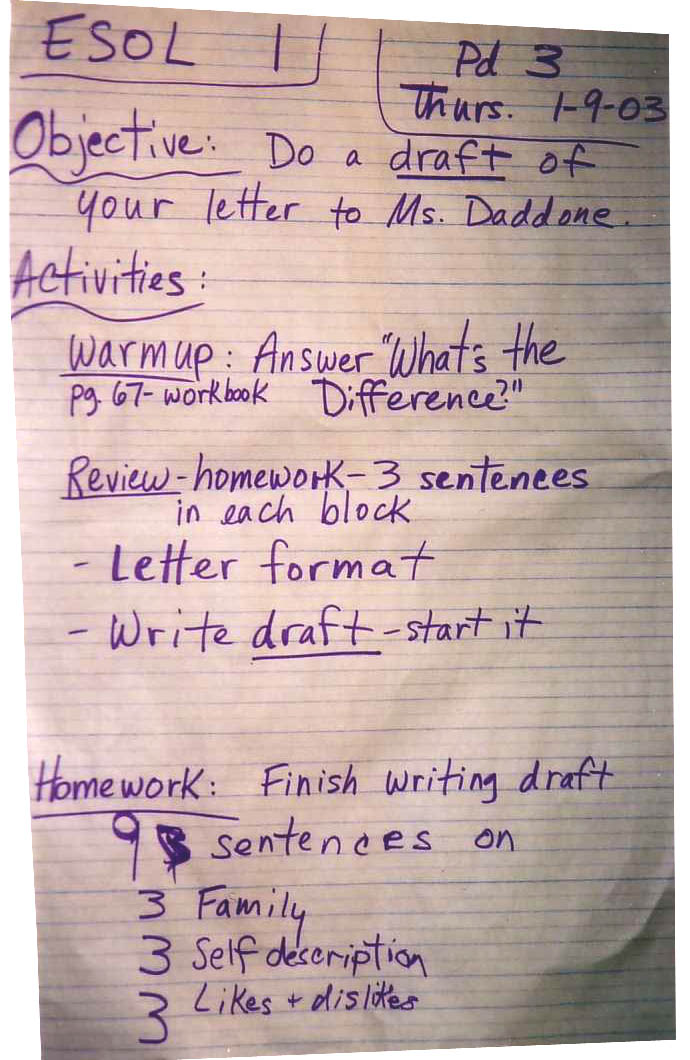 ESOL 1
Pd 3
Thurs. 1-9-03
Objective: Do a draft of
your letter to Ms. Daddone.
Activities:
Warmup: Answer "What's the
pg. 67- workbook Difference?"
Review - homework - 3 sentences
in each block
- Letter format
- Write draft - start it
Homework: Finish writing draft
9 sentences on
3 Family
3 Self description
3 Likes + dislikes